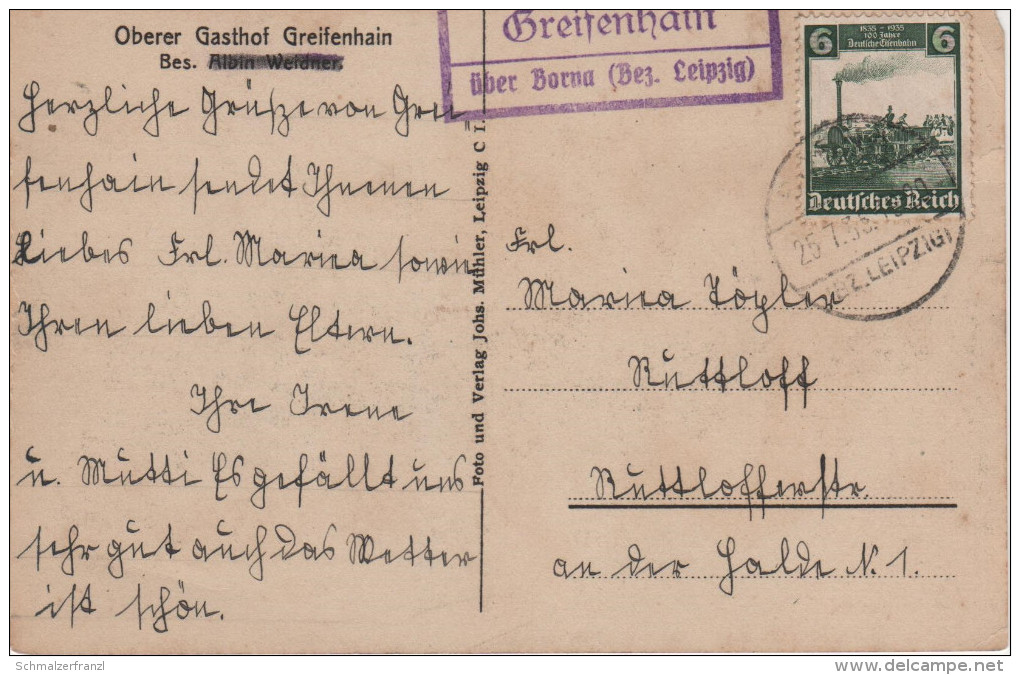 Oberer Gasthof Greifenhain
Bes. Albin Weidner
Herzliche Grüsze von Grei
fenhain sendet Ihnenen
Liebes Frl. Mariea sowie
Ihren lieben Eltern.
Ihre Irene
u. Mutti Es gefällt uns
sehr gut auch das Wetter
ist schön.
Foto und Verlag Johs. Mühler, Leipzig C 1.
Greifenhain
über Borna (Bez. Leipzig)
6 1835-1935 6
100 Jahre
Deutsche Eisenbahn
Deutsches Reich
25.7.35.
(BZ. LEIPZIG)
Frl.
Mariea Töpler
Ruttloff
Ruttlofferstr.
an der Halde N. 1.
Schmalzerfranzl
www.delcampe.net